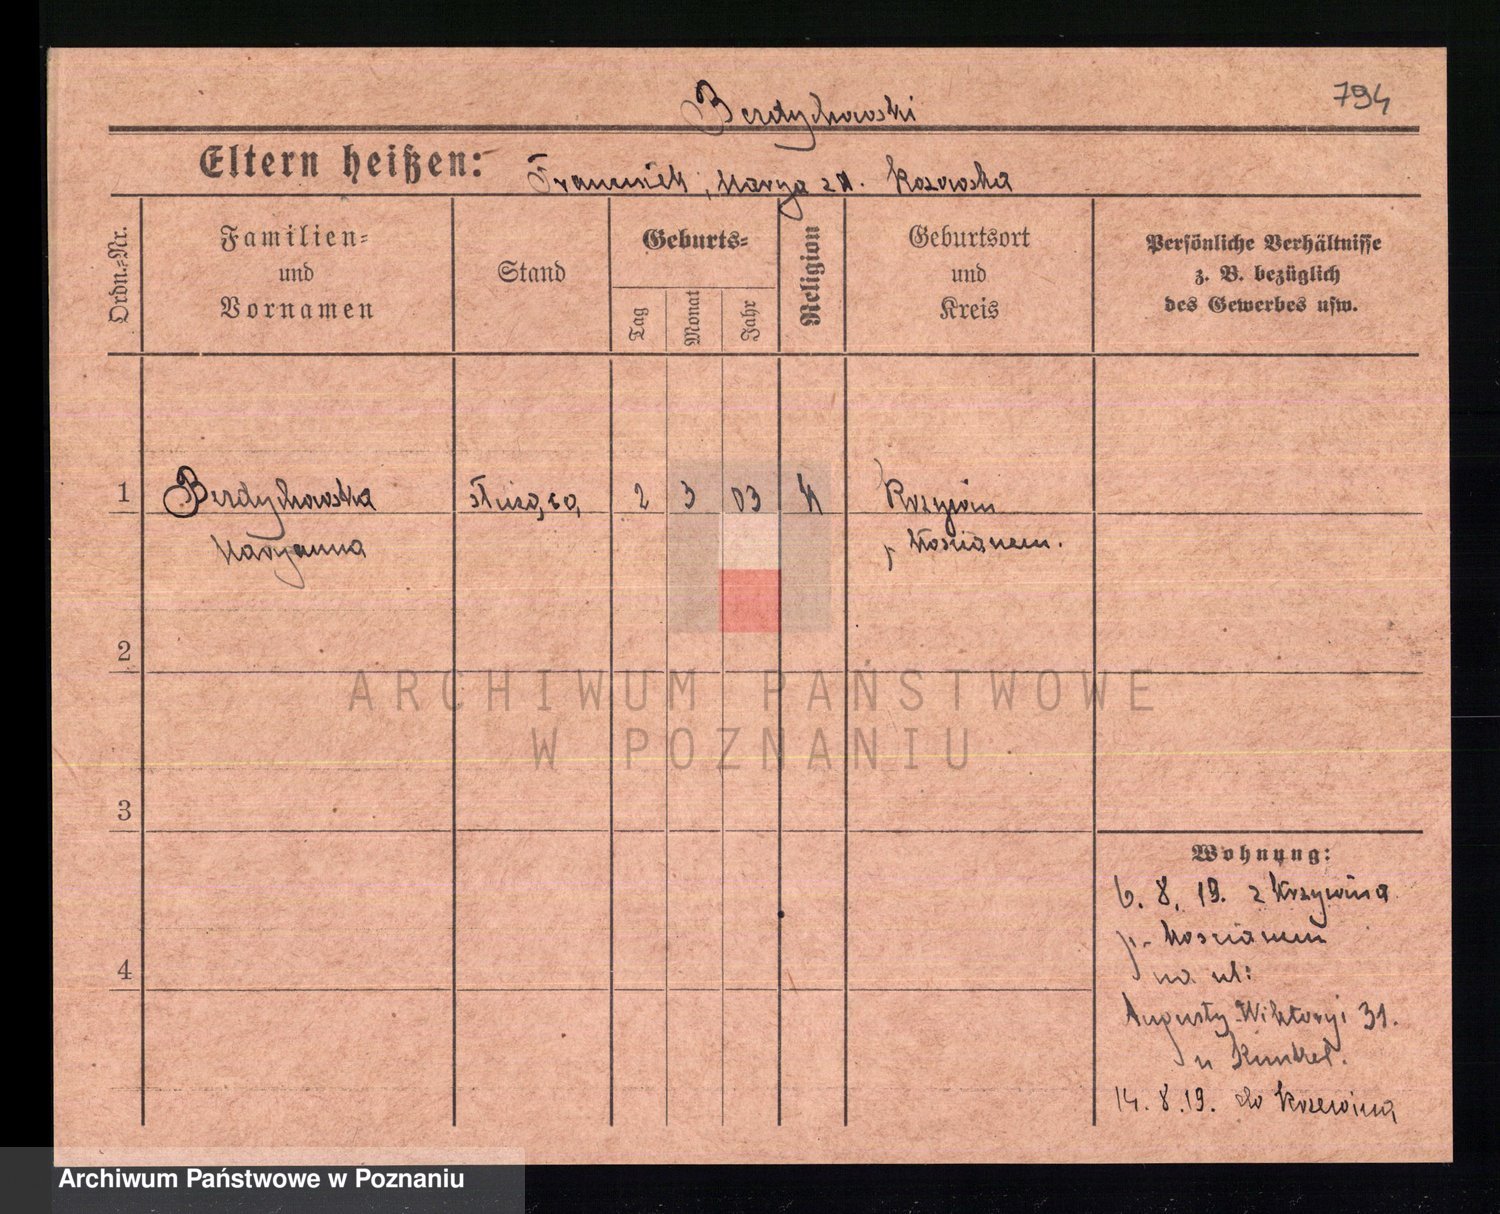 794
Berdychowski
Eltern heißen: Franciszek, Marya zd. Kozowska
Ordn.=Nr.
Familien=
und
Vornamen
Stand
Geburts=
Tag
Monat
Jahr
Religion
Geburtsort
und
Kreis
Persönliche Verhältnisse
z. B. bezüglich
des Gewerbes usw.
1 Berdychowska służąca, 2 3 03 K Krzywin
Maryanna p Kościanem.
2
ARCHIWUM PAŃSTWOWE
W POZNANIU
3
Wohnung:
6. 8. 19. z Krzywina
p. Kościanem
na ul:
4
Augusty Wiktoryi 31.
u Kunkel.
14. 8. 19. do Krzewina
Archiwum Państwowe w Poznaniu